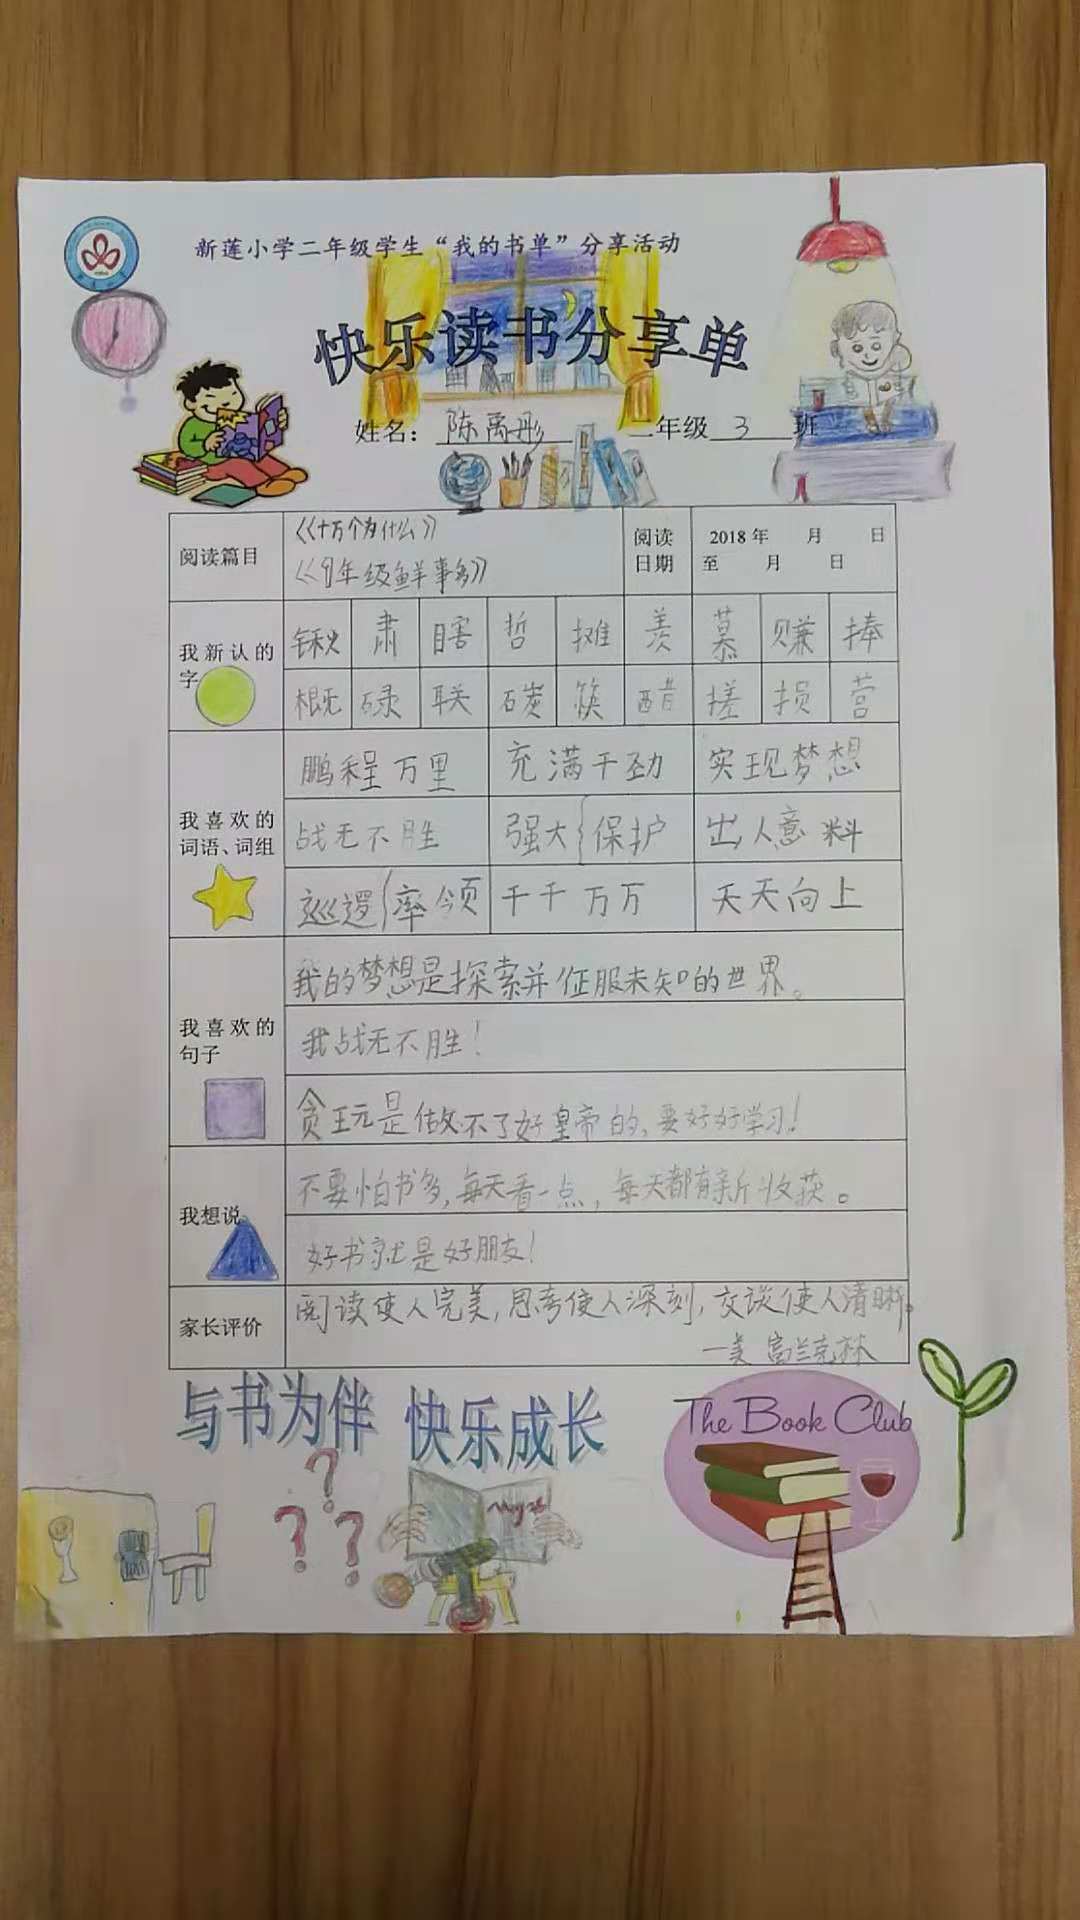 新莲小学二年级学生“我的书单”分享活动
快乐读书分享单
姓名：陈禹彤 二年级 3 班
阅读篇目
《十万个为什么》
《9年级鲜事多》
阅读日期
2018年 月 日
至 月 日
我新认的字
锹 肃 瞎 哲 摊 羡 慕 赚 捧
概 碌 联 碳 筷 醋 搓 损 营
我喜欢的词语、词组
鹏程万里 充满干劲 实现梦想
战无不胜 强大 保护 出人意料
巡逻 率领 千千万万 天天向上
我喜欢的句子
我的梦想是探索并征服未知的世界。
我战无不胜！
贪玩是做不了好皇帝的，要好好学习！
我想说
不要怕书多，每天看一点，每天都有新收获。
好书就是好朋友！
家长评价
阅读使人完美，思考使人深刻，交谈使人清晰。
一美 富兰克林
与书为伴 快乐成长
The Book Club
? ? ?